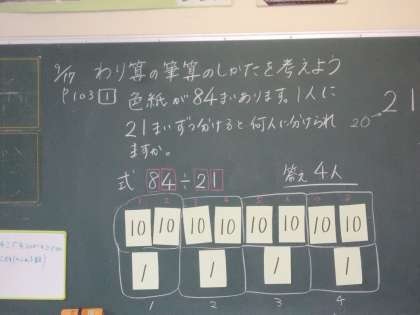 9/17 わり算の筆算のしかたを考えよう
P103 1 色紙が84まいあります。1人に
21まいずつ分けると何人に分けられ
ますか。
21
20
式 84÷21 答え 4人
1 2 3 4 5 6 7 8
10 10 10 10 10 10 10 10
1 1 1 1
1 2 3 4